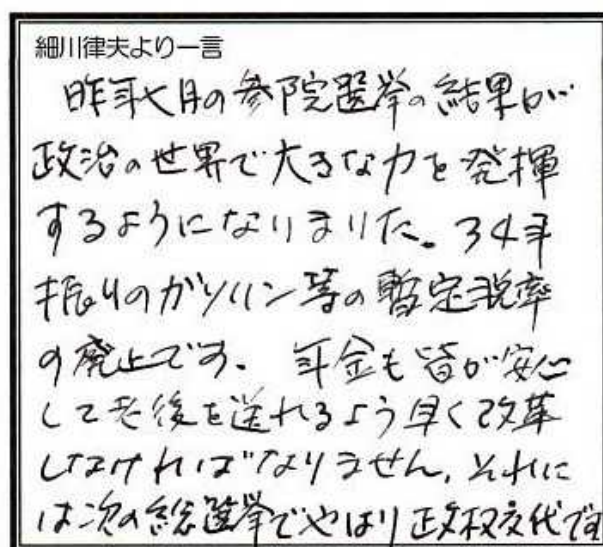 細川律夫より一言
昨年七月の参院選挙の結果が
政治の世界で大きな力を発揮
するようになりました。34年
振りのガソリン等の暫定税率
の廃止です。年金も皆が安心
して老後を送れるよう早く改革
しなければなりません。それに
は次の総選挙でやはり政权交代です